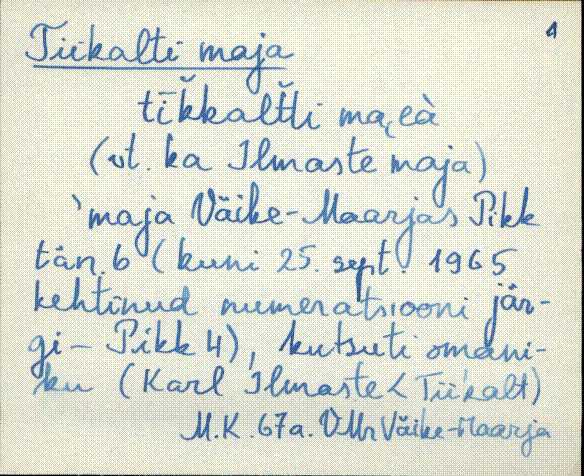 4
Tiikalti maja
tīk̆kalt̆ti ma͔eà
(vt. ka Ilmaste maja)
`maja Väike-Maarjas Pikk
tän. 6 (kuni 25. sept. 1965
kehtinud numeratsiooni jär-
gi - Pikk 4), kutsuti omani-
ku (Karl Ilmaste < Tiikalt)
M.K. 67a. VMr Väike-Maarja